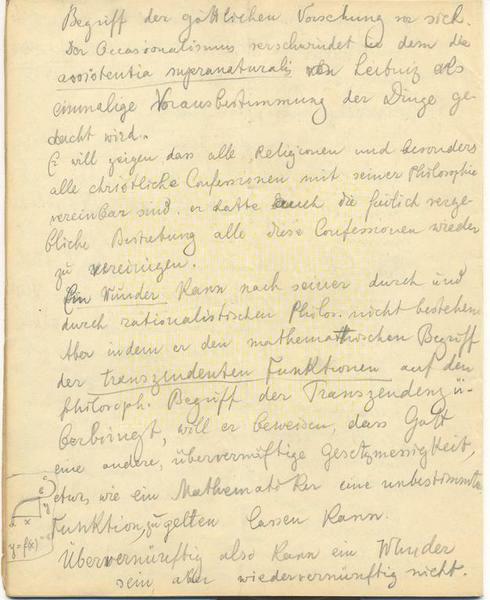 Begriff der göttlichen Vorsehung vor sich.
Der Occasionalismus verschwindet in dem die
assistentia supranaturalis von Leibniz als
einmalige Vorausbestimmung der Dinge ge-
dacht wird.
Er will zeigen dass alle Religionen und besonders
alle christliche Confessionen mit seiner Philosophie
vereinbar sind. er hatte auch die freilich verge-
bliche Bestrebung alle diese Confessionen wieder
zu vereinigen.
Ein Wunder kann nach seiner durch und
durch rationalistischen Philos. nicht bestehen
Aber indem er den mathematischen Begriff
der transzendenten Funktionen auf den
philosoph. Begriff der Transzendenz ü-
berbringt, will er beweisen, dass Gott
eine andere, übervernüftige Gesetzmessigkeit,
etwa wie ein Mathematiker eine unbestimmte
Funktion, zu gelten lassen kann.
x y
y=f(x)
Übervernünftig also kann ein Wunder
sein, aber wiedervernünftig nicht.